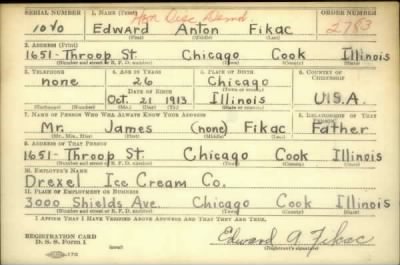 SERIAL NUMBER 1. NAME (Print) Hon Disc Demob ORDER NUMBER
1040 Edward Anton Fikac 2783
(First) (Middle) (Last)
2. ADDRESS (Print)
1651- Throop St. Chicago Cook Illinois
(Number and street or R. F. D. number) (Town) (County) (State)
3. TELEPHONE 4. AGE IN YEARS 5. PLACE OF BIRTH 6. COUNTRY OF CITIZENSHIP
none 26 Chicago
DATE OF BIRTH (Town or county)
Oct. 21 1913 Illinois U.S.A.
(Mo.) (Day) (Yr.) (State or country)
7. NAME OF PERSON WHO WILL ALWAYS KNOW YOUR ADDRESS 8. RELATIONSHIP OF THAT PERSON
Mr. James (none) Fikac Father
(Mr., Mrs., Miss) (First) (Middle) (Last)
9. ADDRESS OF THAT PERSON
1651- Throop St. Chicago Cook Illinois
(Number and street or R. F. D. number) (Town) (County) (State)
10. EMPLOYER'S NAME
Drexel Ice Cream Co.
11. PLACE OF EMPLOYMENT OR BUSINESS
3000 Shields Ave. Chicago Cook Illinois
(Number and street or R. F. D. number) (Town) (County) (State)
I AFFIRM THAT I HAVE VERIFIED ABOVE ANSWERS AND THAT THEY ARE TRUE.
REGISTRATION CARD
D. S. S. Form 1 Edward A Fikac
(Registrant's signature)